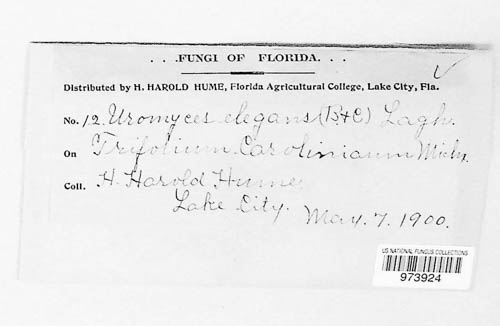 . . .FUNGI OF FLORIDA. . .
Distributed by H. HAROLD HUME, Florida Agricultural College, Lake City, Fla.
No. 12. Uromyces elegans (B+C) Lagh.
On Trifolium Carolinianum Michx.
Coll. H. Harold Hume.
Lake City. May. 7. 1900.
US NATIONAL FUNGUS COLLECTIONS
973924